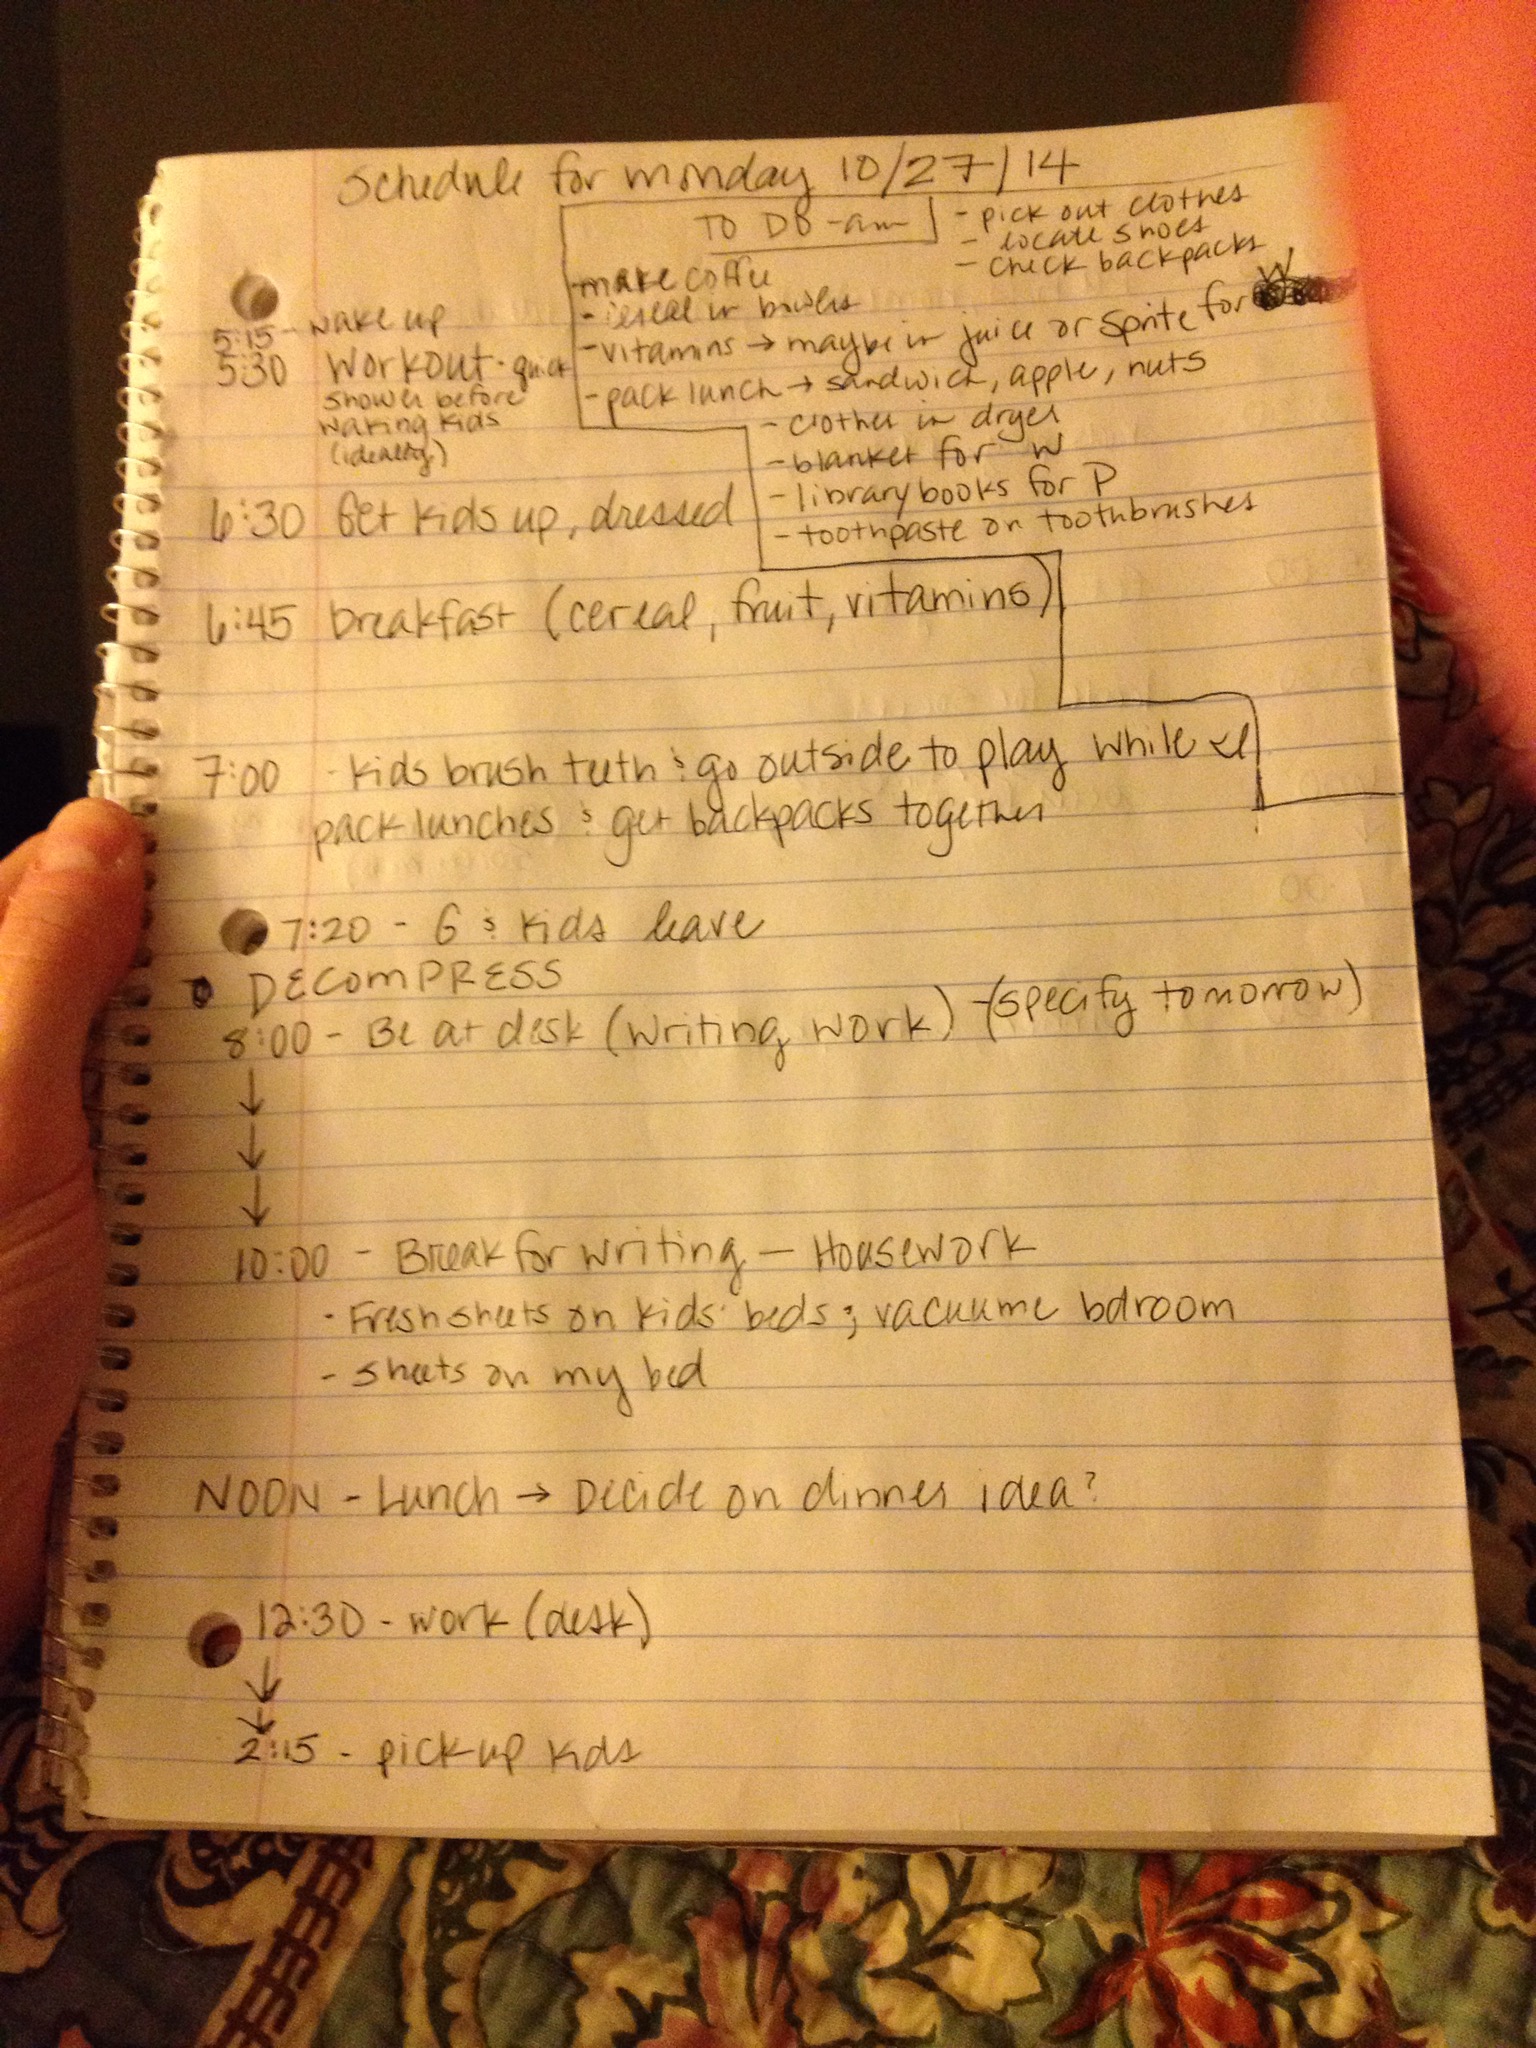 Schedule for monday 10/27/14
TO DO - am
- pick out clothes
- locate shoes
- check backpacks
- make coffee
- cereal in bowls
- vitamins → maybe in juice or Sprite for W
- pack lunch → sandwich, apple, nuts
- clothes in dryer
- blanket for W
- library books for P
- toothpaste on toothbrushes
5:15 - wake up
5:30 Workout - quick
shower before
waking kids
(ideally)
6:30 Get kids up, dressed
6:45 breakfast (cereal, fruit, vitamins)
7:00 - kids brush teeth & go outside to play while I
pack lunches & get backpacks together
7:20 - G & kids leave
DECOMPRESS
8:00 - Be at desk (writing work) - (specify tomorrow)
↓
↓
↓
10:00 - Break for writing - Housework
- Fresh sheets on kids' beds; vacuume bdroom
- sheets on my bed
NOON - Lunch → Decide on dinner idea?
12:30 - work (desk)
↓
↓
2:15 - pick up kids